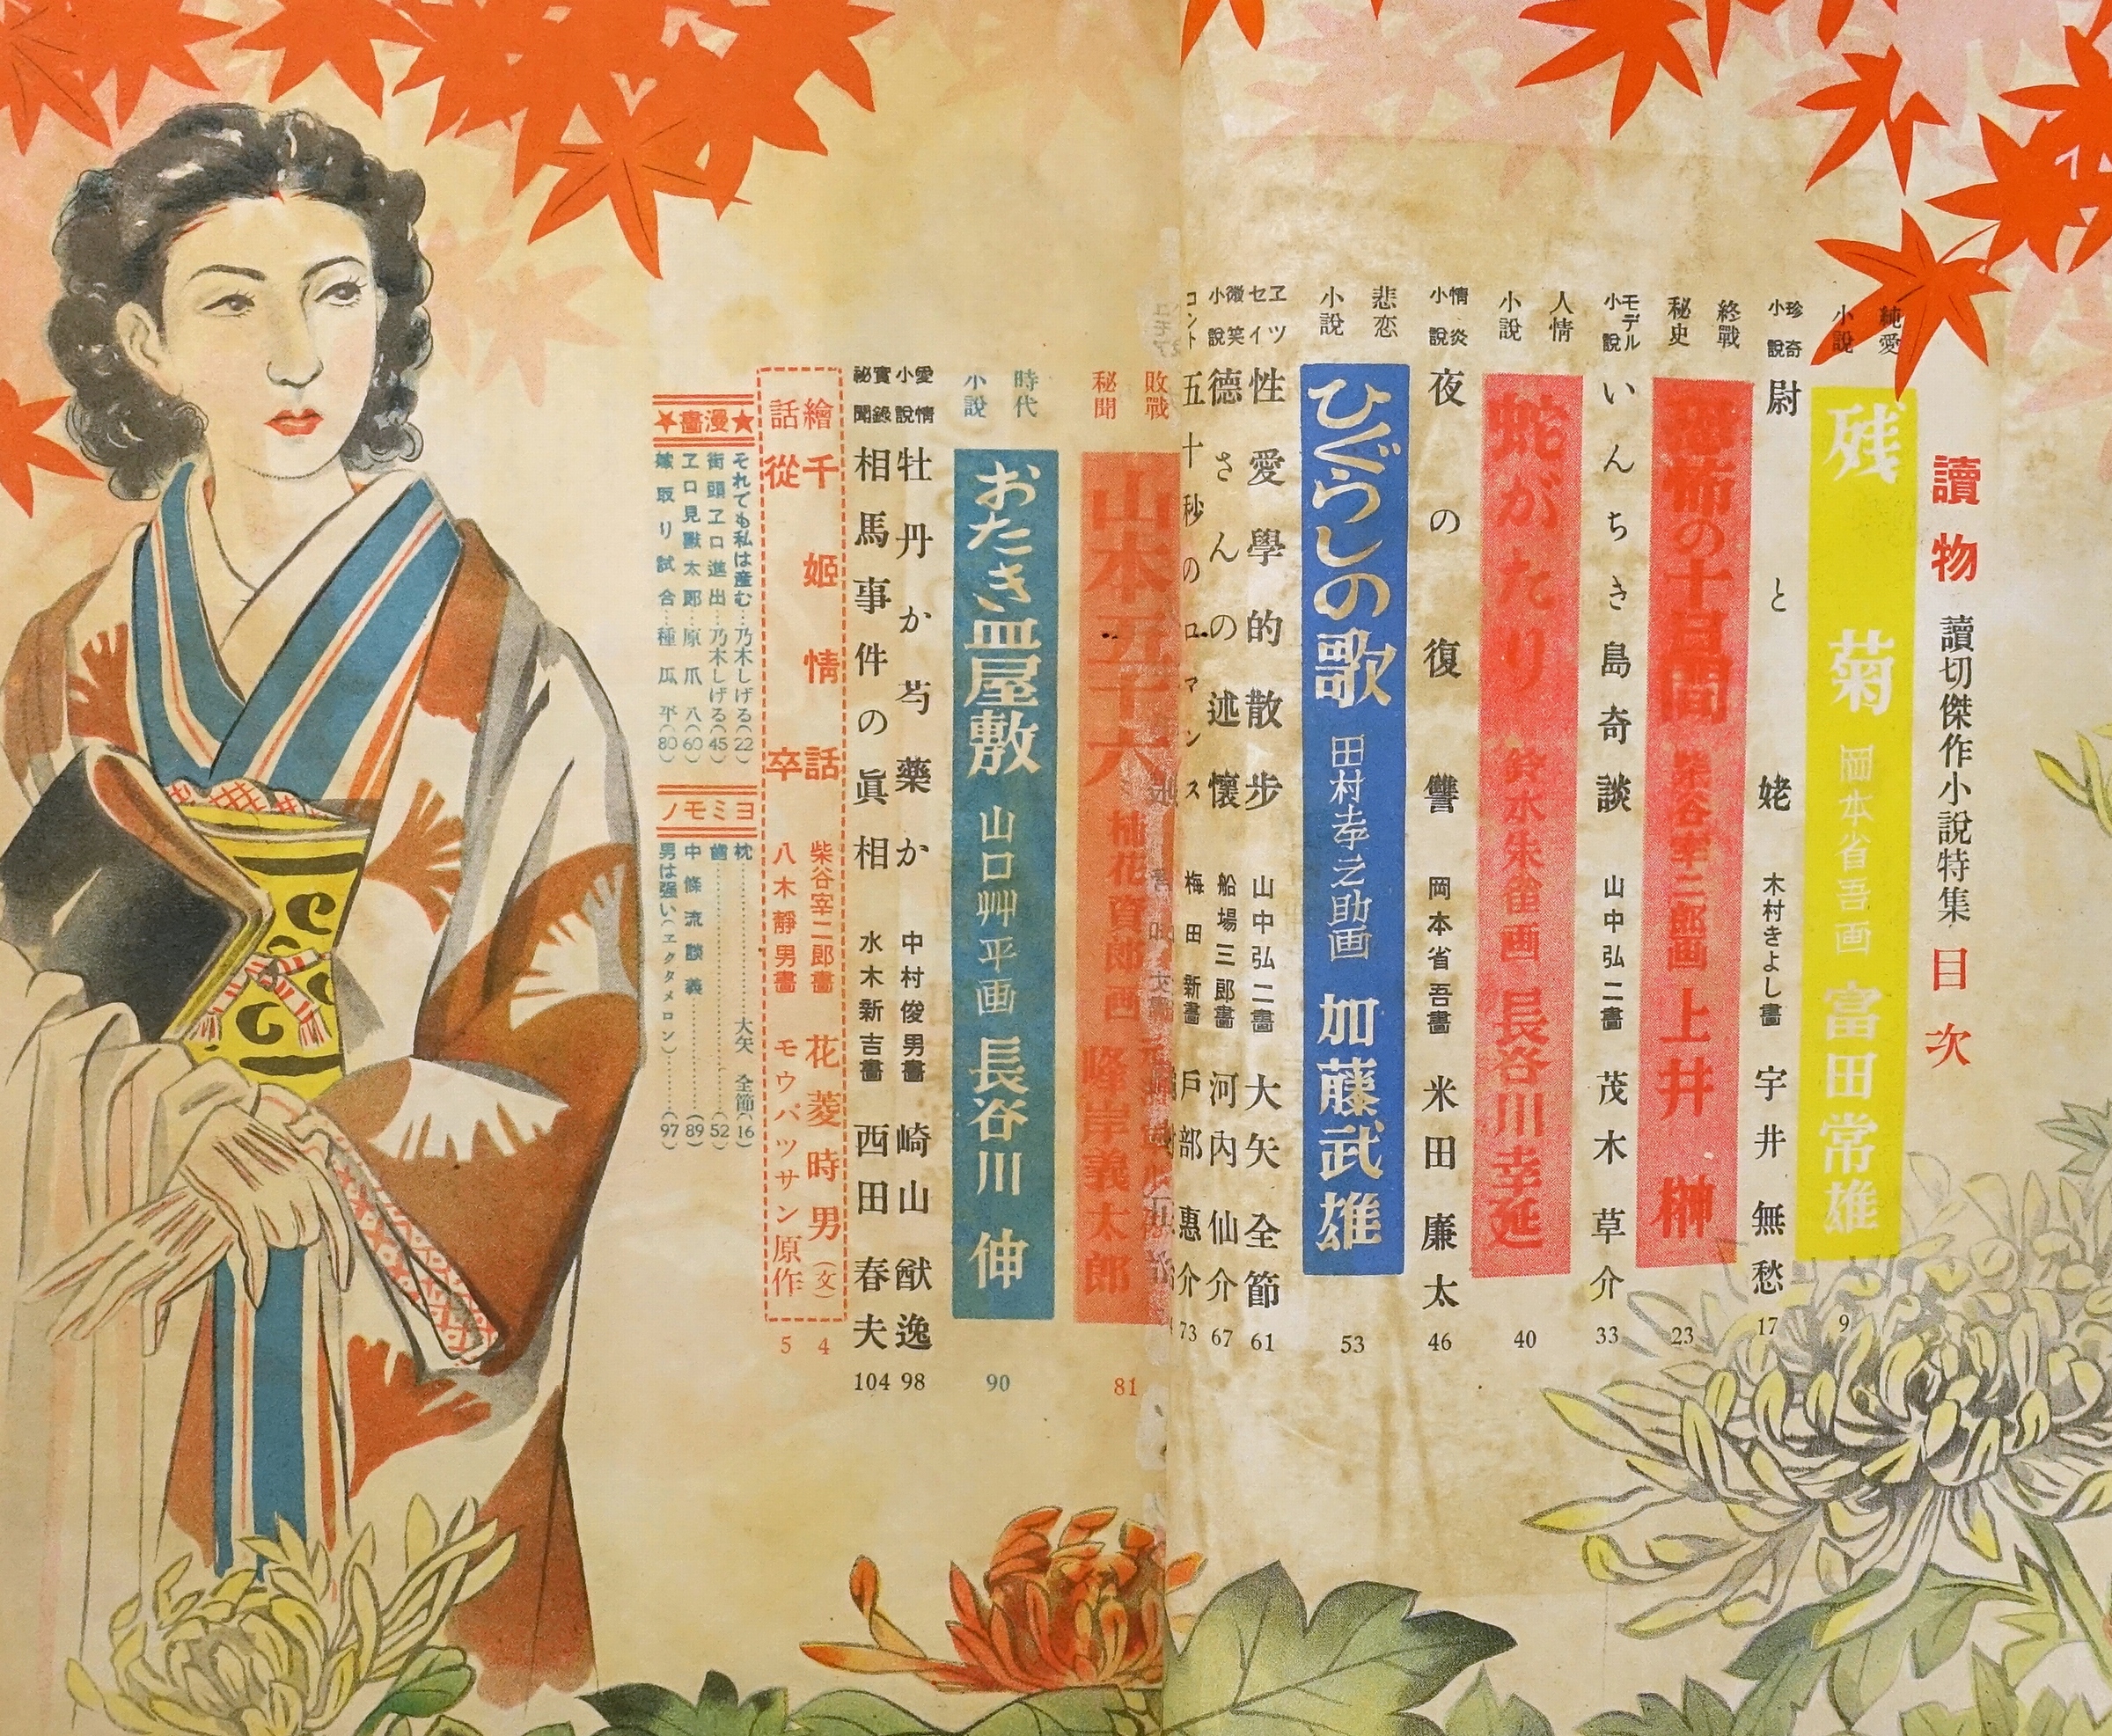 讀物 讀切傑作小説特集 目次
純愛小説 残菊 岡本省吾画 富田常雄 9
珍奇小説 尉と姥 木村きよし畫 宇井無愁 17
終戰秘史 恐怖の十日間 柴谷宰二郎画 上井榊 23
モデル小説 いんちき島奇談 山中弘二畫 茂木草介 33
人情小説 蛇がたり 鈴木朱雀画 長谷川幸延 40
情炎小説 夜の復讐 岡本省吾畫 米田廉太 46
悲恋小説 ひぐらしの歌 田村孝之助画 加藤武雄 53
ヱツセイ 性愛學的散歩 山中弘二畫 大矢全節 61
微笑小説 德さんの述懷 船場三郎畫 河内仙介 67
コント 五十秒のロマンス 梅田新畫 戸部惠介 73
敗戰秘聞 山本五十六 柿花資郎画 峰岸義太郎 81
時代小説 おたき皿屋敷 山口艸平画 長谷川伸 90
愛情小説 牡丹か芍藥か 中村俊男畫 崎山猷逸 98
實錄秘聞 相馬事件の眞相 水木新吉畫 西田春夫 104
繪話
千姫情話 柴谷宰二郎畫 花菱時男(文) 4
從卒 八木靜男畫 モウパツサン原作 5
★漫畫★
それでも私は産む…乃木しげる(22)
街頭ヱロ進出…乃木しげる(45)
ヱロ見獸太郎…原爪八(60)
嫁取り試合…種瓜平(80)
ヨミモノ
枕………大矢全節(16)
齒………(52)
中條流談義………(89)
男は强い(ヱクタメロン)………(97)